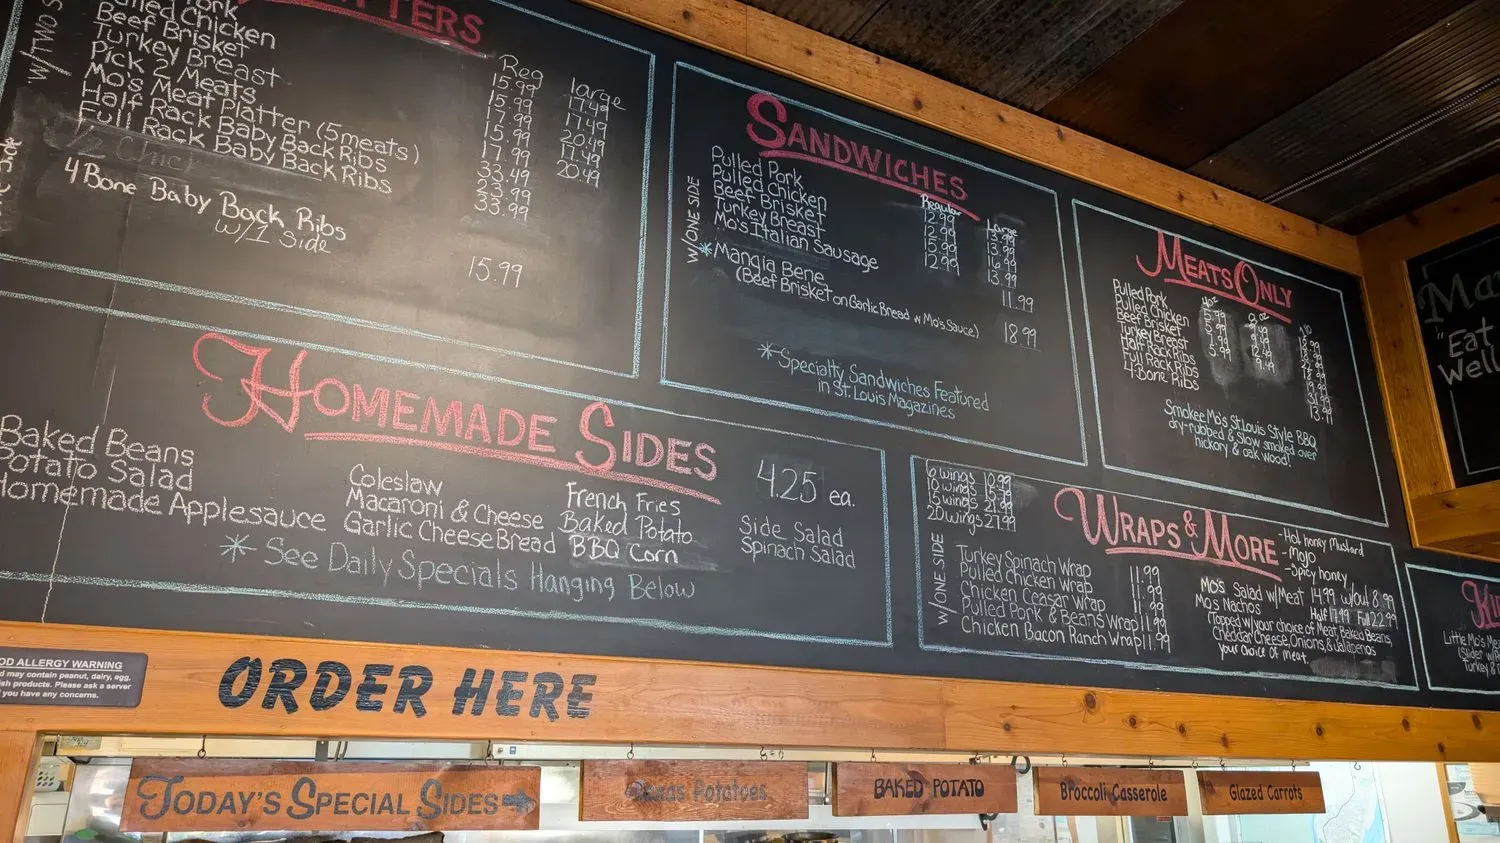 TTERS
Reg large
Pulled Chicken 15.99 17.49
Beef Brisket 15.99 17.49
Turkey Breast 17.99 20.49
Pick 2 Meats 15.99 17.49
Mo's Meat Platter (5 meats) 17.99 20.49
Half Rack Baby Back Ribs 33.49
Full Rack Baby Back Ribs 23.99
33.99
4 Bone Baby Back Ribs
w/1 Side
15.99
W/TWO S
SANDWICHES
Regular Large
W/ONE SIDE
Pulled Pork 12.99 13.99
Pulled Chicken 12.99
Beef Brisket 15.99 16.99
Turkey Breast 12.99 13.99
Mo's Italian Sausage 11.99
*Mangia Bene
(Beef Brisket on Garlic Bread w Mo's Sauce) 18.99
*Specialty Sandwiches Featured
in St. Louis Magazines
MEATS ONLY
Pulled Pork
Pulled Chicken
Beef Brisket
Turkey Breast
Half Rack Ribs
Full Rack Ribs
4-Bone Ribs
Smokee Mo's St. Louis Style BBQ
dry-rubbed & slow smoked over
hickory & oak wood!
"Eat
Well
HOMEMADE SIDES
4.25 ea.
Baked Beans
Potato Salad
Homemade Applesauce
Coleslaw
Macaroni & Cheese
Garlic Cheese Bread
French Fries
Baked Potato
BBQ Corn
Side Salad
Spinach Salad
* See Daily Specials Hanging Below
6 wings 10.99
10 wings 15.99
15 wings 21.99
20 wings 27.99
WRAPS & MORE
-Hot honey Mustard
- Mojo
-Spicy honey
W/ONE SIDE
Turkey Spinach Wrap 11.99
Pulled Chicken Wrap 11.99
Chicken Ceasar Wrap 11.99
Pulled Pork & Beans Wrap 11.99
Chicken Bacon Ranch Wrap 11.99
MO's Salad w/Meat 14.99 w/out 8.99
Mo's Nachos Half 17.99 Full 22.99
(Topped w/your choice of Meat, Baked Beans,
Cheddar Cheese, Onions, & Jalapenos
your choice of meat.
Little Mo's Me
(Slider w/
Turkey &
OD ALLERGY WARNING
d may contain peanut, dairy, egg,
ish products. Please ask a server
you have any concerns.
ORDER HERE
TODAY'S SPECIAL SIDES
Potatoes
BAKED POTATO
Broccoli Casserole
Glazed Carrots